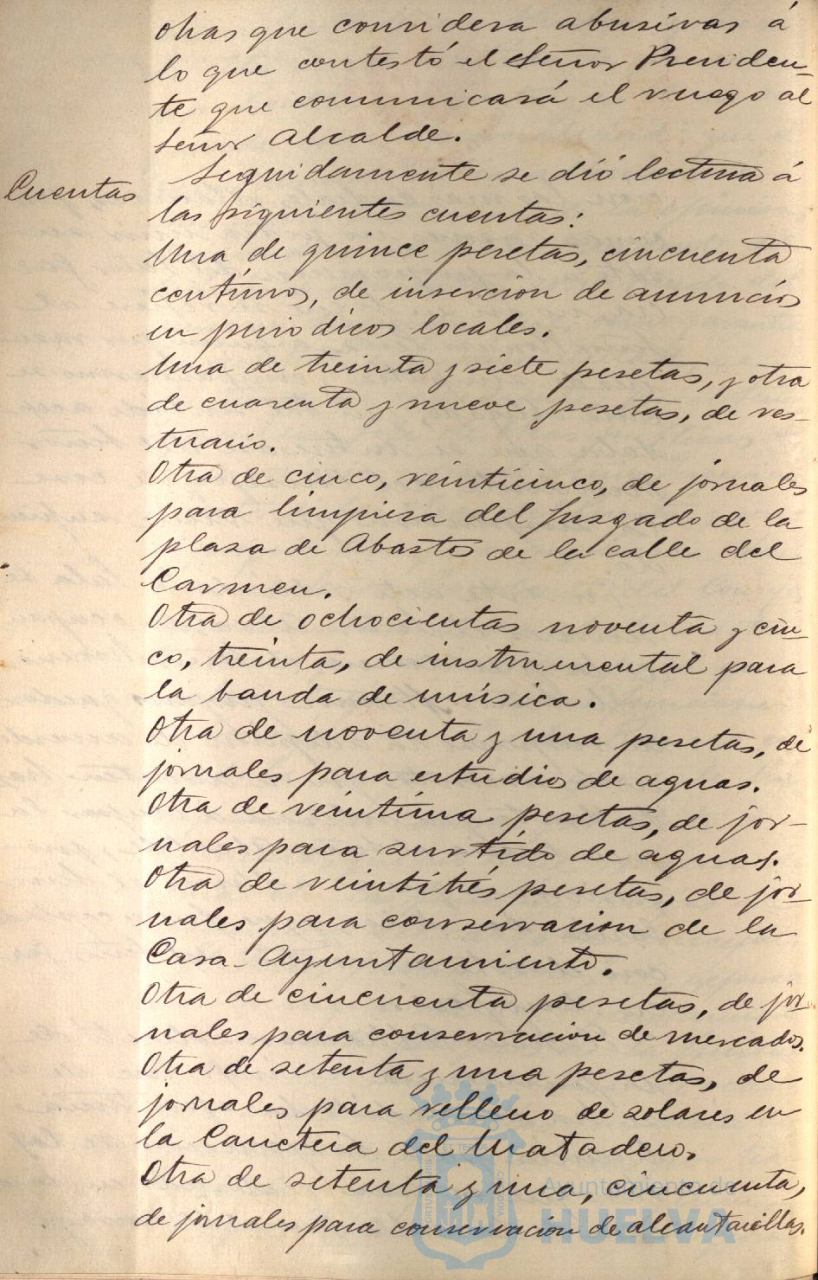 obras que considera abusivas á
lo que contestó el Señor Presiden-
te que comunicará el ruego al
Señor Alcalde.
Cuentas
Seguidamente se dió lectura á
las siguientes cuentas:
Una de quince pesetas, cincuenta
centimos, de insercion de anuncios
en periodicos locales.
Una de treinta y siete pesetas, y otra
de cuarenta y nueve pesetas, de ves-
tuario.
Otra de cinco, veinticinco, de jornales
para limpiesa del Jusgado de la
plasa de Abastos de la calle del
Carmen.
Otra de ochocientas noventa y cin-
co, treinta, de instrumental para
la banda de música.
Otra de noventa y una pesetas, de
jornales para estudio de aguas.
Otra de veintiuna pesetas, de jor-
nales para surtido de aguas.
Otra de veintitrés pesetas, de jor-
nales para conservacion de la
Casa-Ayuntamiento.
Otra de cincuenta pesetas, de jor-
nales para conservacion de mercados.
Otra de setenta y una pesetas, de
jornales para relleno de solares en
la Carretera del Matadero.
Otra de setenta y una, cincuenta,
de jornales para conservacion de alcantarillas.
Ayuntamiento de
HUELVA